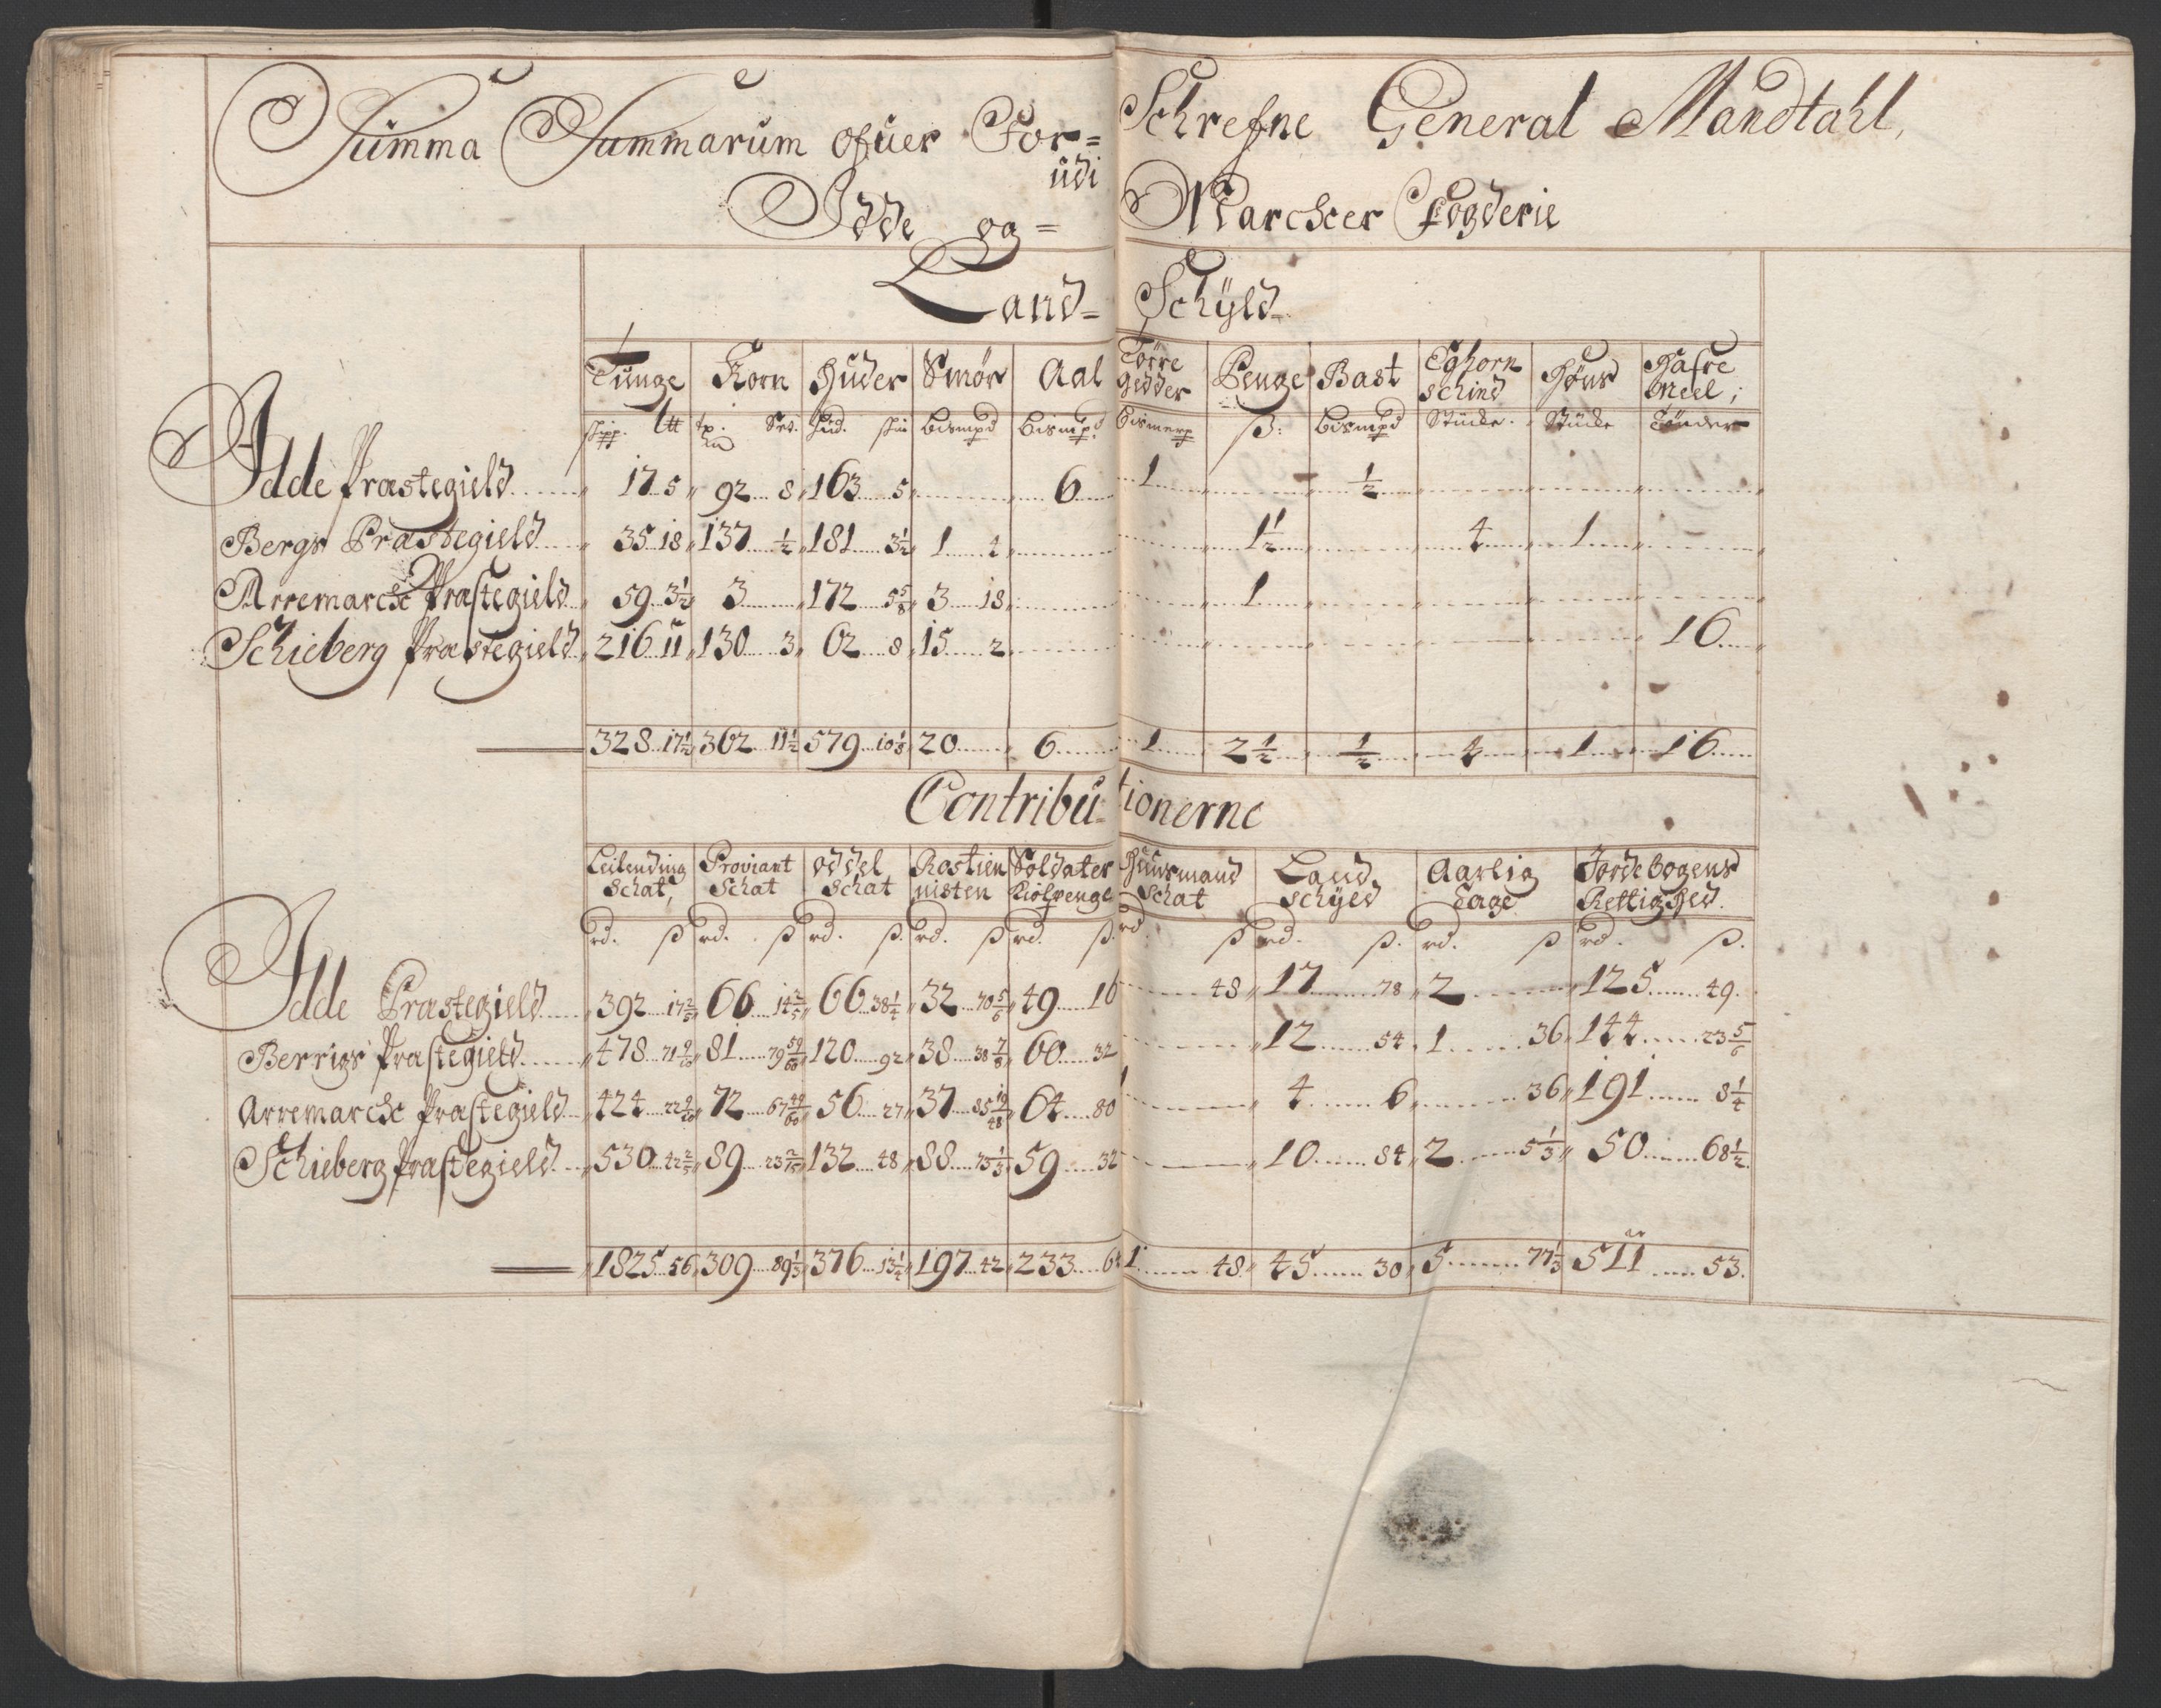 Summa Summarum ofuer For= Schrefne General Mandtahl,
udi
Idde og= Marcher Fogderie
Land= Schyld
Tunge Korn Huder Smør Aal Törre Gedder Penge Bast Eghorn schind Høns Hafre Meel;
shipp. ltt tp. Set. hud. shin bismpd bismpd bismerp ß: bismpd Stücke. Stücke Tönder
Idde Præstegield 17 5 92 8 163 5 6 1 ½
Bergs Præstegield 35 18 137 ½ 181 3½ 1 4 1½ 4 1
Arremarche Præstegield 59 3½ 3 172 5⅝ 3 18 1
Schieberg Præstegield 216 11 130 3 62 8 15 2 16
328 17½ 362 11½ 579 10⅛ 20 6 1 2½ ½ 4 1 16
Contributionerne
Leilending schat, Proviant Schat Oddel schat Rostiennisten Soldater Kiolpenge Huusmand Schat Land schyld Aarlig Tage Jordebogens Rettighed.
rd. ß rd. ß rd. ß. rd. ß rd. ß. rd ß rd. ß. rd. ß rd. ß.
Idde Præstegield 392 17⅖ 66 14⅖ 66 38¼ 32 70⅚ 49 16 48 17 78 2 125 49.
Berrigs Præstegield 478 71 9/20 81 79 59/60 120 92 38 38⅞ 60 32 12 54 1 36 144 23⅚
Arremarche Præstegield 424 22 9/20 72 67 49/60 56 27 37 85 19/48 64 80 1 4 6 36 191 8¼
Schieberg Præstegield 530 42⅖ 89 23 2/15 132 48 88 73⅓ 59 32 10 84 2 5⅓ 50 68½.
1825 56 309 89⅓ 376 13¼ 197 42 233 64 1 48 45 30 5 77⅓ 511 53.